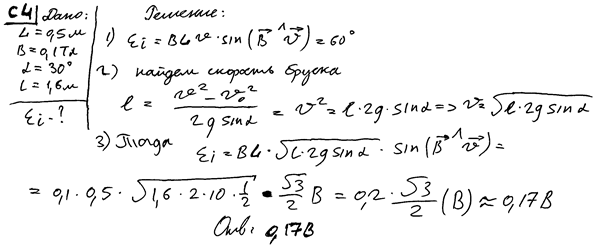 С4 Дано: Решение:
L = 0,5 м
B = 0,1 Тл
α = 30°
l = 1,6 м
Ɛi - ?
1) Ɛi = BLv · sin(B⃗ ^ v⃗) = 60°
2) найдем скорость бруска
l = (v² - v₀²) / (2g sinα) = v² = l · 2g · sinα => v = √(l · 2g sinα)
3) Тогда Ɛi = BL · √(l · 2g sinα) · sin(B⃗ ^ v⃗) =
= 0,1 · 0,5 · √(1,6 · 2 · 10 · 1/2) · √3/2 В = 0,2 · √3/2 (В) ≈ 0,17В
Отв: 0,17В